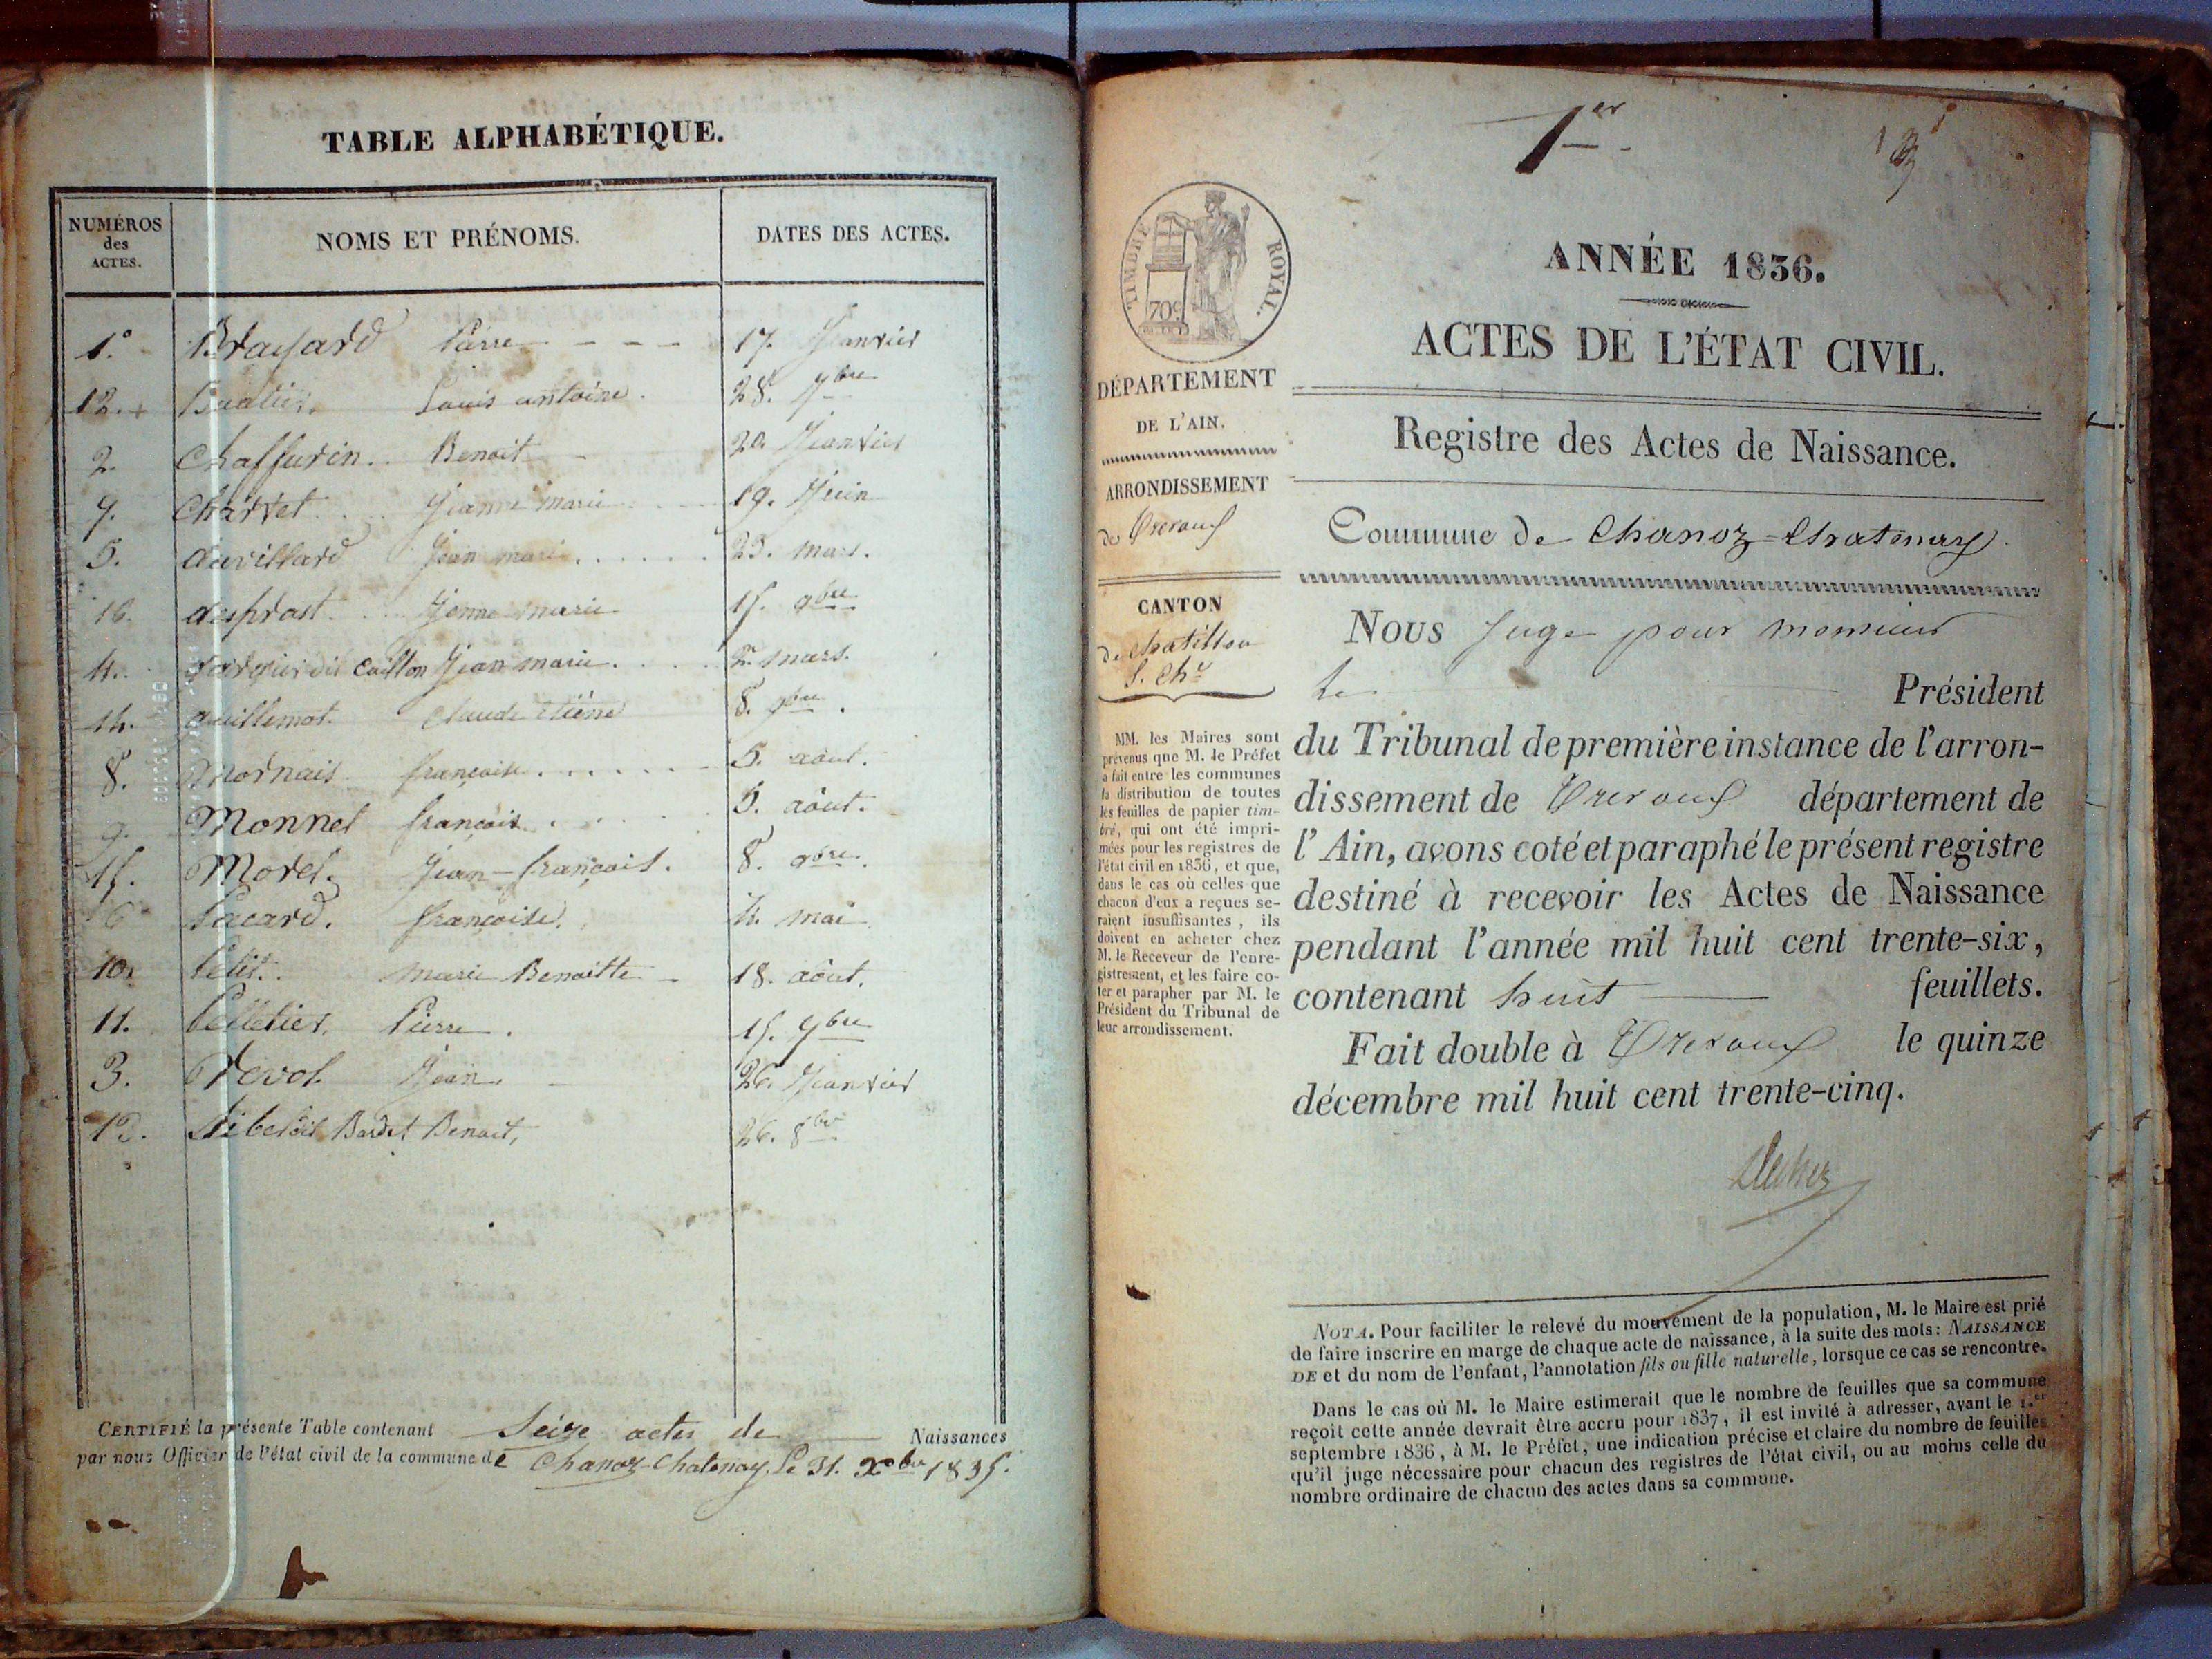 TABLE ALPHABÉTIQUE.
NUMÉROS des ACTES.
NOMS ET PRÉNOMS.
DATES DES ACTES.
1.° Brayard Pierre 17. Janvier
12. Louis antoine. 28. 7bre
2. Chaffurin. Benoit 20. Janvier
7. Charvet Jeanne marie 19. Juin
5. duvillard Jean marie 23. mars.
16. desprost. Jenne marie 15. 9bre
4. dit Caillon Jean marie. 2. mars.
14. Guillemot. Claude Etiene 8. 9bre.
8. Mornais françoise 5. août.
9. Monnet françois 5. août.
15. Morel. Jean-françois. 8. 9bre.
6 Pacard. françoise. 4. mai
10. Petit. marie Benoitte 18. août.
11. Pelletier, Pierre. 15. 7bre
3. revol. Jean. 26. Janvier
13. Bardet Benoit, 26. 8bre
CERTIFIÉ la présente Table contenant Seize actes de Naissances
par nous Officier de l'état civil de la commune de Chanoz-Chatenay. Le 31. Xbre 1835.
1er
TIMBRE ROYAL.
70c
ANNÉE 1836.
ACTES DE L'ÉTAT CIVIL.
Registre des Actes de Naissance.
Commune de Chanoz=Chatenay.
DÉPARTEMENT
DE L'AIN.
ARRONDISSEMENT
de Trevoux
CANTON
de Chatillon
S. Che
MM. les Maires sont
prévenus que M. le Préfet
a fait entre les communes
la distribution de toutes
les feuilles de papier tim-
bré, qui ont été impri-
mées pour les registres de
l'état civil en 1836, et que,
dans le cas où celles que
chacun d'eux a reçues se-
raient insuffisantes, ils
doivent en acheter chez
M. le Receveur de l'enre-
gistrement, et les faire co-
ter et parapher par M. le
Président du Tribunal de
leur arrondissement.
Nous Juge pour monsieur
Le Président
du Tribunal de première instance de l'arron-
dissement de Trevoux département de
l'Ain, avons coté et paraphé le présent registre
destiné à recevoir les Actes de Naissance
pendant l'année mil huit cent trente-six,
contenant huit feuillets.
Fait double à Trevoux le quinze
décembre mil huit cent trente-cinq.
NOTA. Pour faciliter le relevé du mouvement de la population, M. le Maire est prié
de faire inscrire en marge de chaque acte de naissance, à la suite des mots: NAISSANCE
DE et du nom de l'enfant, l'annotation fils ou fille naturelle, lorsque ce cas se rencontre.
Dans le cas où M. le Maire estimerait que le nombre de feuilles que sa commune
reçoit cette année devrait être accru pour 1837, il est invité à adresser, avant le 1.er
septembre 1836, à M. le Préfet, une indication précise et claire du nombre de feuilles
qu'il juge nécessaire pour chacun des registres de l'état civil, ou au moins celle du
nombre ordinaire de chacun des actes dans sa commune.